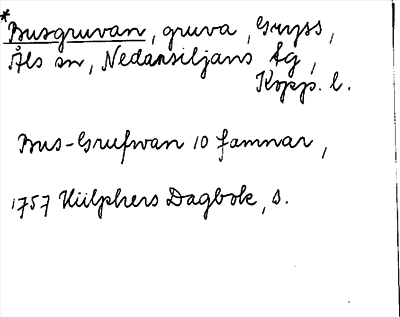 *Busgruvan, gruva, Gryss,
Åls sn, Nedansiljans fg,
Kopp. l.
Bus-Grufwan 10 famnar,
1757 Hülphers Dagbok, s.